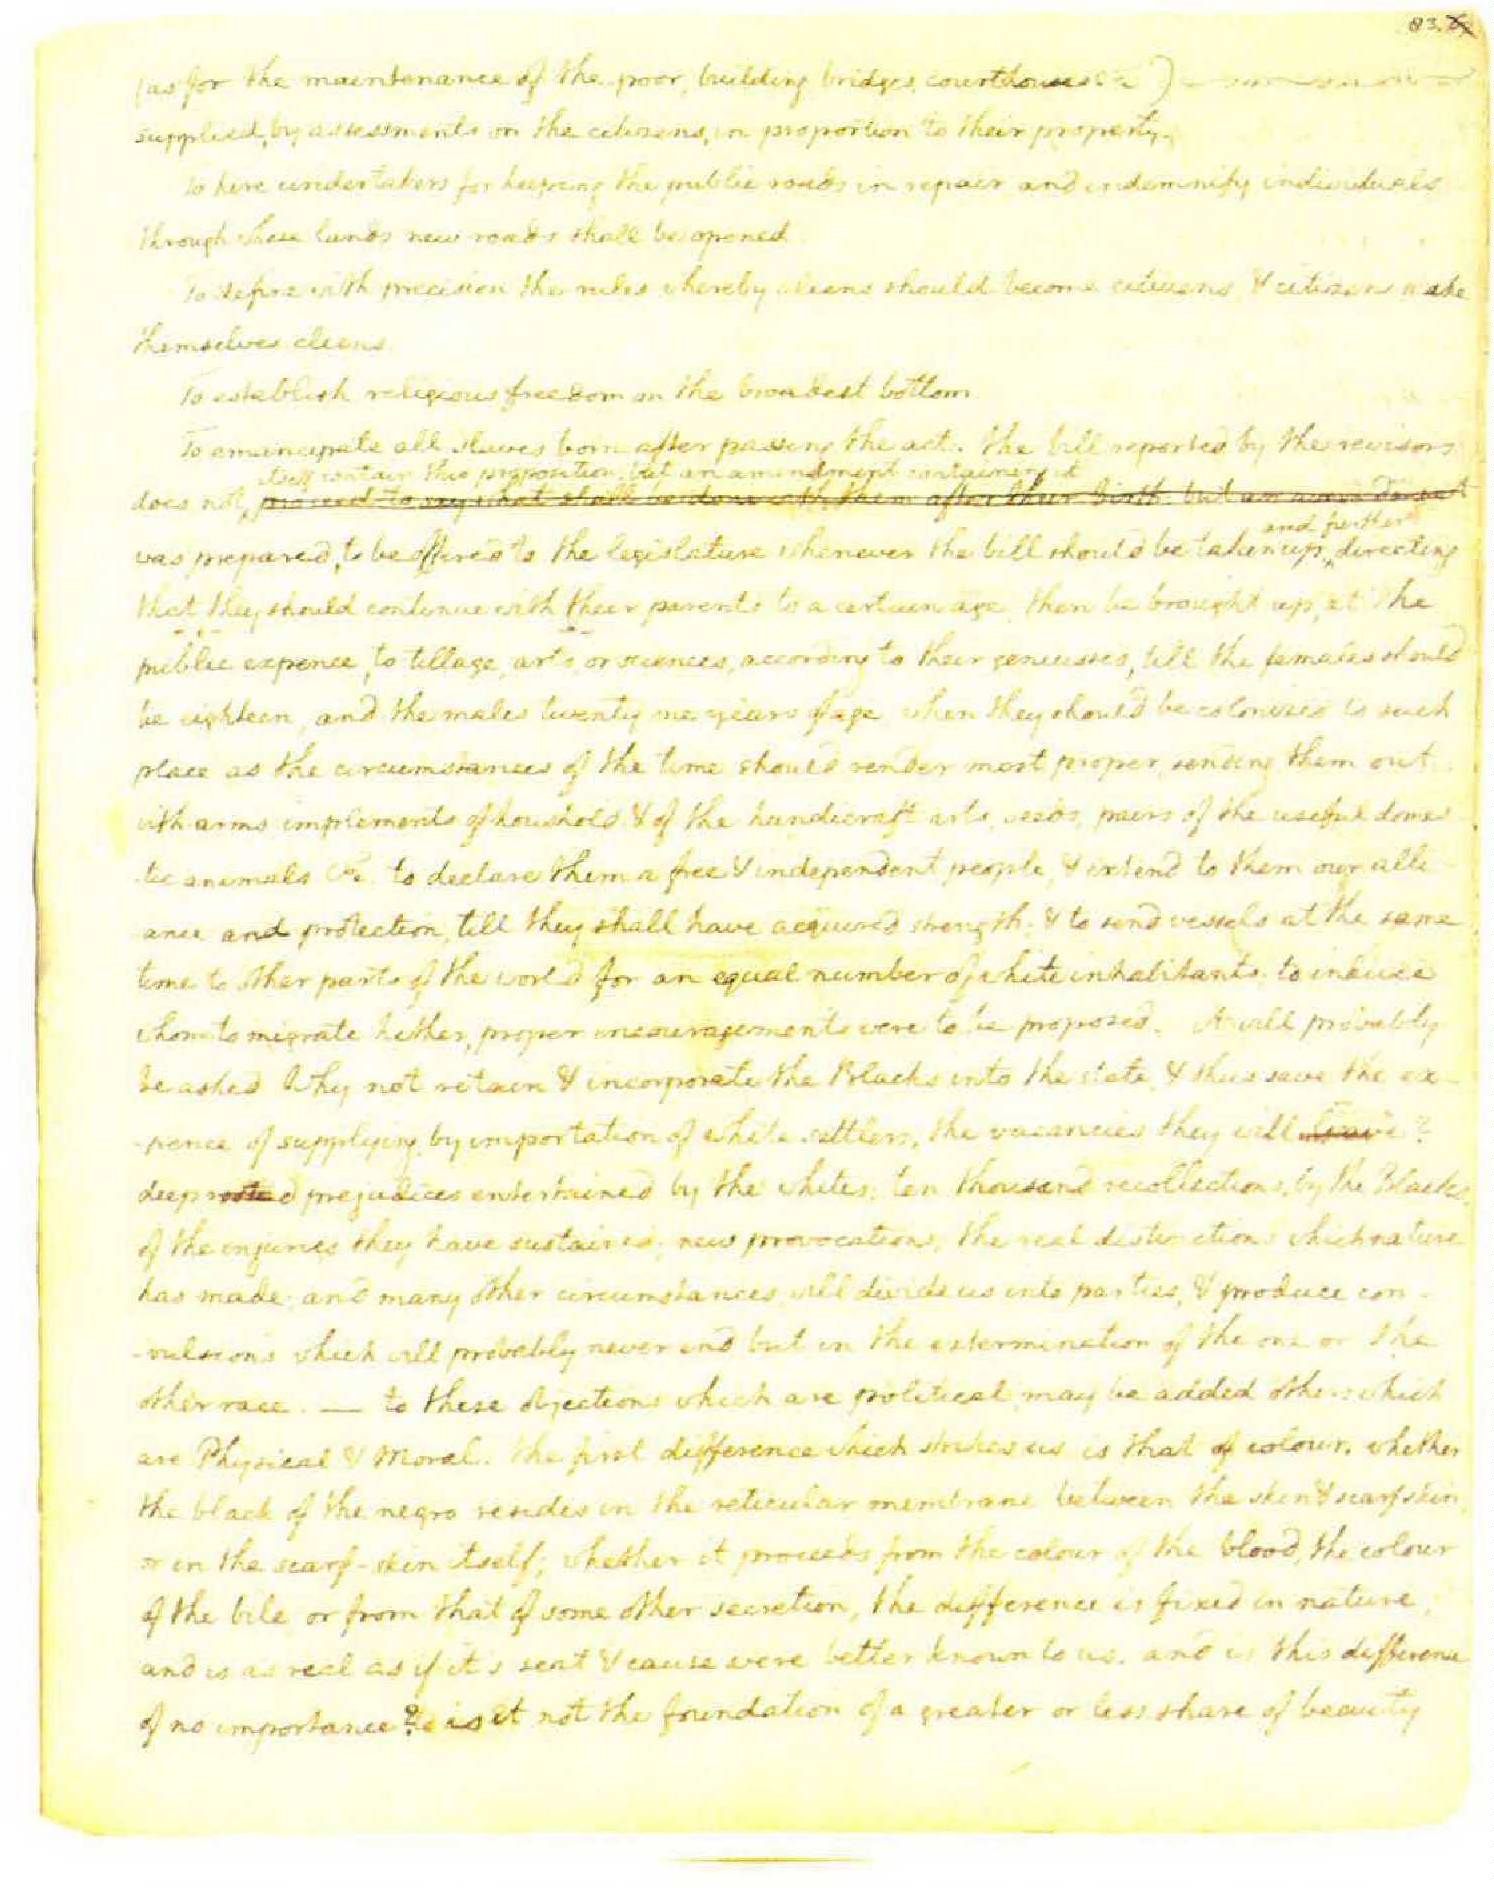 83.
(as for the maintenance of the poor, building bridges, courthouses &c)
supplied, by assessments on the citizens, in proportion to their property.
To hire undertakers for keeping the public roads in repair and indemnify individuals
through whose lands new roads shall be opened.
To define with precision the rules whereby aliens should become citizens, & citizens make
themselves aliens.
To establish religious freedom on the broadest bottom.
To emancipate all slaves born after passing the act. The bill reported by the revisors
itself contain this proposition, but an amendment containing it
does not, proceed to say what shall be done with them after their birth. but an amendment
and further
was prepared, to be offered to the legislature whenever the bill should be taken up, directing
that they should continue with their parents to a certain age, then be brought up, at the
public expence, to tillage, arts, or sciences, according to their geniusses, till the females should
be eighteen, and the males twenty one years of age when they should be colonized to such
place as the circumstances of the time should render most proper, sending them out
with arms implements of houshold & of the handicraft arts, seeds, pairs of the useful domes
-tic animals &c. to declare them a free & independent people, & extend to them our alli
ance and protection, till they shall have acquired strength; & to send vessels at the same
time to other parts of the world for an equal number of white inhabitants; to induce
whom to migrate hither, proper encouragements were to be proposed. It will probably
be asked Why not retain & incorporate the Blacks into the state, & thus save the ex-
-pence of supplying, by importation of white settlers, the vacancies they will leave?
deep rooted prejudices entertained by the whites; ten thousand recollections, by the Blacks,
of the injuries they have sustained; new provocations; the real distinctions which nature
has made; and many other circumstances will divide us into parties, & produce con-
-vulsions which will probably never end but in the extermination of the one or the
other race. — to these objections which are political may be added others which
are Physical & Moral. The first difference which strikes us is that of colour. whether
the black of the negro resides in the reticular membrane between the skin & scarfskin,
or in the scarf-skin itself; whether it proceeds from the colour of the blood, the colour
of the bile or from that of some other secretion, the difference is fixed in nature,
and is as real as if it's seat & cause were better known to us. and is this difference
of no importance? is it not the foundation of a greater or less share of beauty